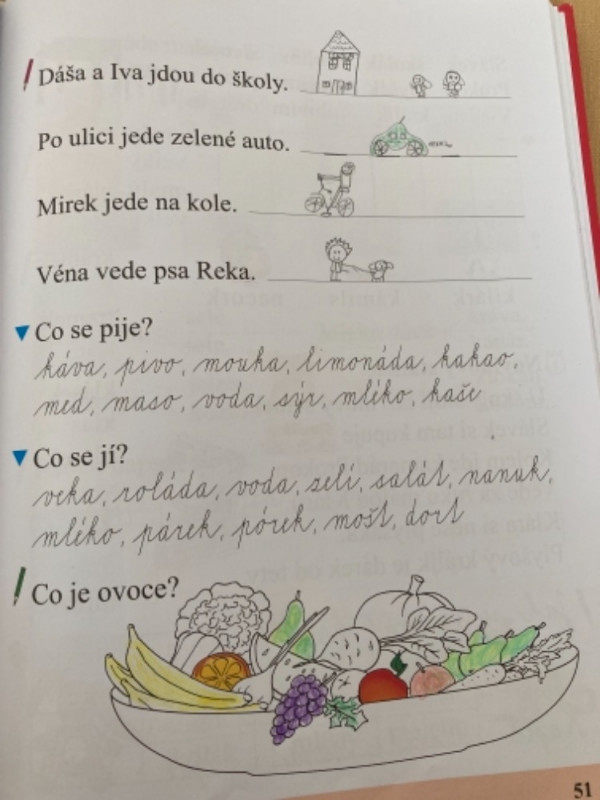 Dáša a Iva jdou do školy.
Po ulici jede zelené auto.
Mirek jede na kole.
Véna vede psa Reka.
Co se pije?
káva, pivo, mouka, limonáda, kakao,
med, maso, voda, sýr, mléko, kaše
Co se jí?
veka, roláda, voda, zelí, salát, nanuk,
mléko, párek, pórek, mošt, dort
Co je ovoce?
51